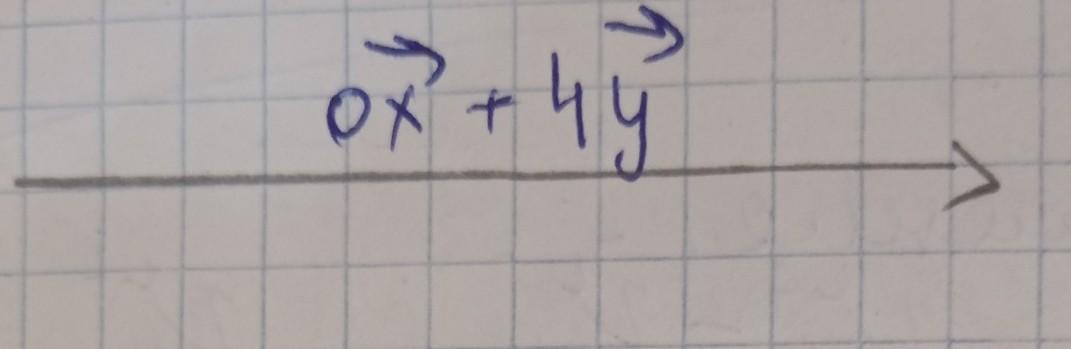 0x⃗ + 4y⃗